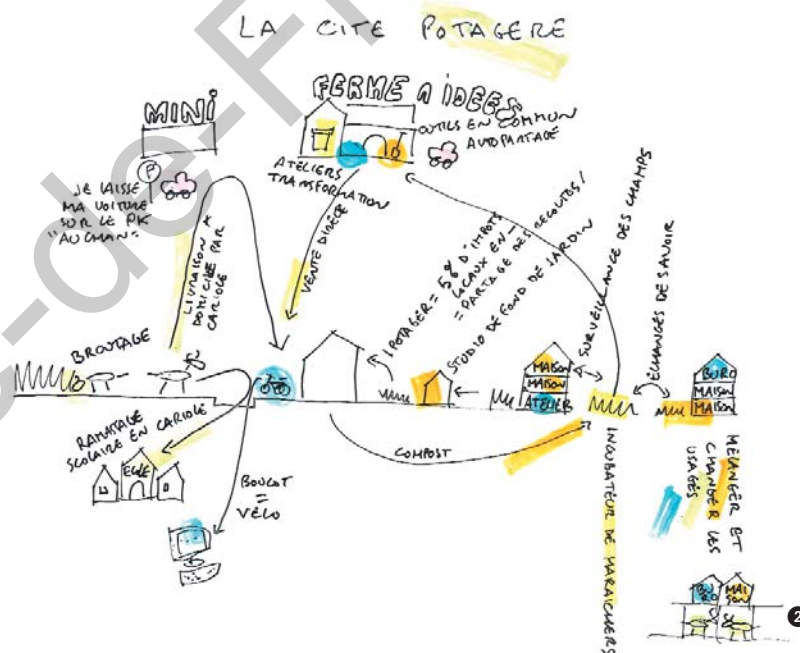 LA CITE POTAGERE
MINI
FERME A IDEES
OUTILS EN COMMUN
AUTOPARTAGE
ATELIERS
TRANSFORMATION
P
JE LAISSE
MA VOITURE
SUR LE PK
"AUCHAN"
LIVRAISON A
DOMICILE PAR
CARIOLE
VENTE DIRECTE
1 POTAGER = 5% D'IMPOTS
LOCAUX EN -
= PARTAGE DES RECOLTES /
STUDIO DE FOND DE JARDIN
SURVEILLANCE DES CHAMPS
ECHANGES DE SAVOIR
BROUTAGE
MAISON
MAISON
ATELIER
BURO
MAISON
MAISON
RAMASSAGE
SCOLAIRE EN CARIOLE
ECOLE
BOULOT
=
VELO
COMPOST
INCUBATEUR DE MARAICHERS
MELANGER ET
CHANGER LES
USAGES
BU
RO
MAI
SON
2
-de-F